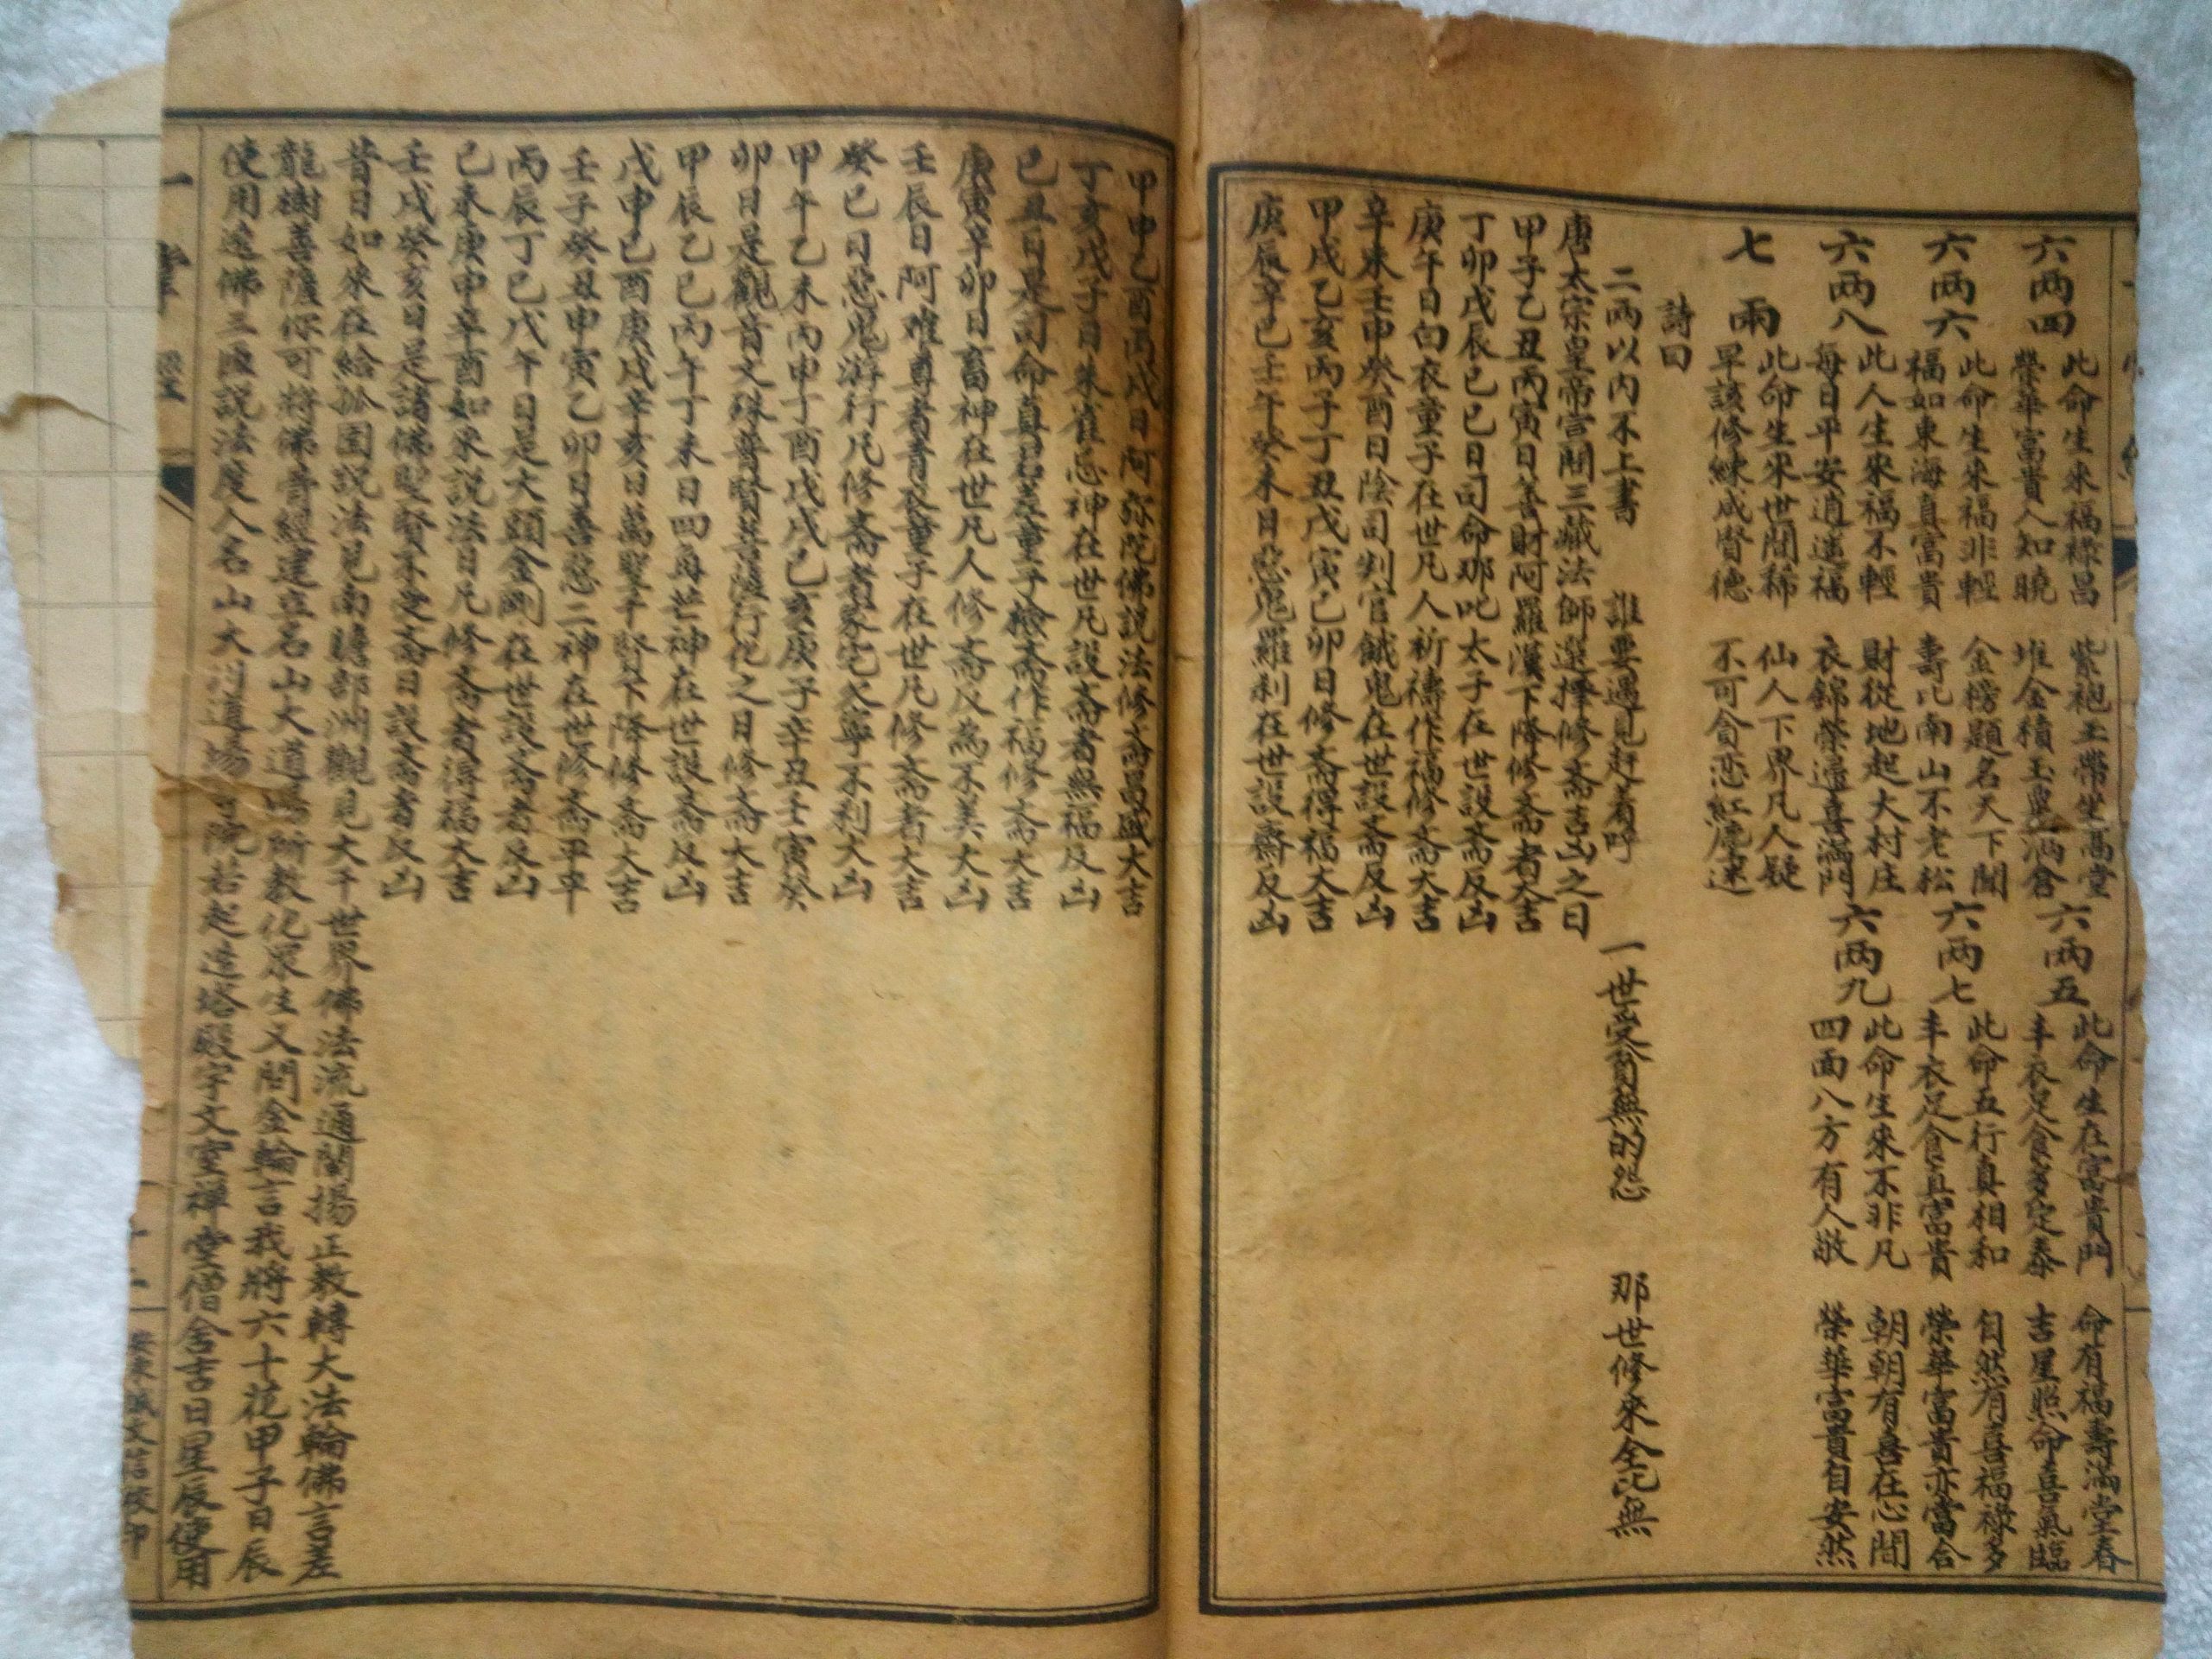 六两四
此命生來福祿昌 紫袍玉帶坐高堂
榮華富貴人知曉 堆金積玉與滿倉
六两五
此命生在富貴門 命有福壽滿堂春
丰衣足食多定泰 吉星照命喜氣臨
六两六
此命生來福非輕 金榜題名天下聞
福如東海真富貴 壽比南山不老松
六两七
此命五行真相和 自然有喜福祿多
丰衣足食真富貴 榮華富貴亦當合
六两八
此人生來福不輕 財從地起大村庄
每日平安逍遥福 衣錦榮歸喜滿門
六两九
此命生來不非凡 朝朝有喜在心間
四面八方有人敬 榮華富貴自安然
七兩
此命生來世間稀 仙人下界凡人疑
早該修練成督德 不可貪恋紅塵迷
詩曰
二兩以内不上書 誰要遇見赶着呼 一世受貧無的怨 那世修來全比無
唐太宗皇帝宫問三藏法師選擇修斋吉凶之日
甲子乙丑丙寅日善財阿羅漢下降修斋者大吉
丁卯戊辰己巳日司命那叱太子在世設斋反凶
庚午日白衣童子在世凡人祈禱作福修斋大吉
辛未壬申癸酉日陰司判官餓鬼在世設斋反凶
甲戌乙亥丙子丁丑戊寅己卯日修斋得福大吉
庚辰辛巳壬午癸未日惡鬼羅刹在世設齋反凶
甲申乙酉丙戌日阿弥陀佛説法修斋昌盛大吉
丁亥戊子日朱雀忌神在世凡設斋者無福反凶
己丑日是司命真君差童子檢斋作福修斋大吉
庚寅辛卯日畜神在世凡人修斋反為不美大凶
壬辰日阿难尊者青衣童子在世凡修斋者大吉
癸巳日惡鬼游行凡修斋者家宅欠寧不利大凶
甲午乙未丙申丁酉戊戌己亥庚子辛丑壬寅癸
卯日是觀音文殊普賢菩薩行化之日修斋大吉
甲辰乙巳丙午丁未日四角芒神在世設斋反凶
戊申己酉庚戌辛亥日萬聖千賢下降修斋大吉
壬子癸丑甲寅乙卯日善惡二神在世修斋平平
丙辰丁巳戊午日是大頭金剛在世設斋者反凶
己未庚申辛酉如來説法日凡修斋者得福大吉
壬戌癸亥日是諸佛聖賢不受斋日設斋者反凶
昔日如來在給孤园説法見南瞻部洲觀見大千世界佛法流通闡揚正教轉大法輪佛言差
龍樹善薩你可將佛音經建立名山大道場所教化眾生又問金輪言我將六十花甲子日辰
使用造佛三匯説法度人名山大川道場寺院若起造塔殿宇文室禅堂僧舍吉日星辰使用